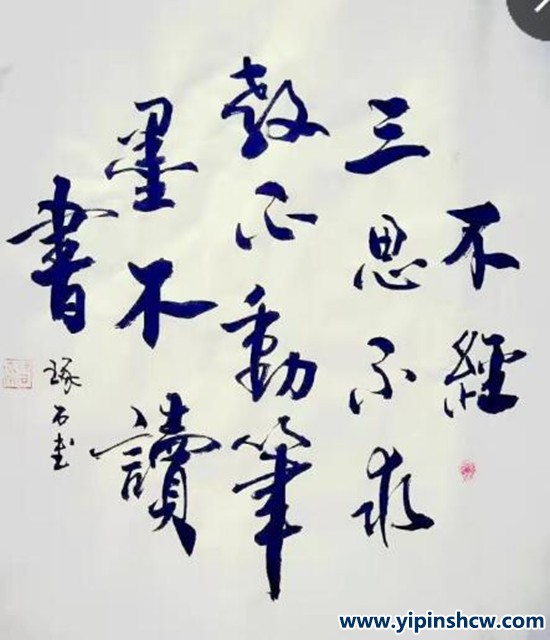 不經
三思不求
教不動筆
墨不讀
書
琢石書
www.yipinshcw.com